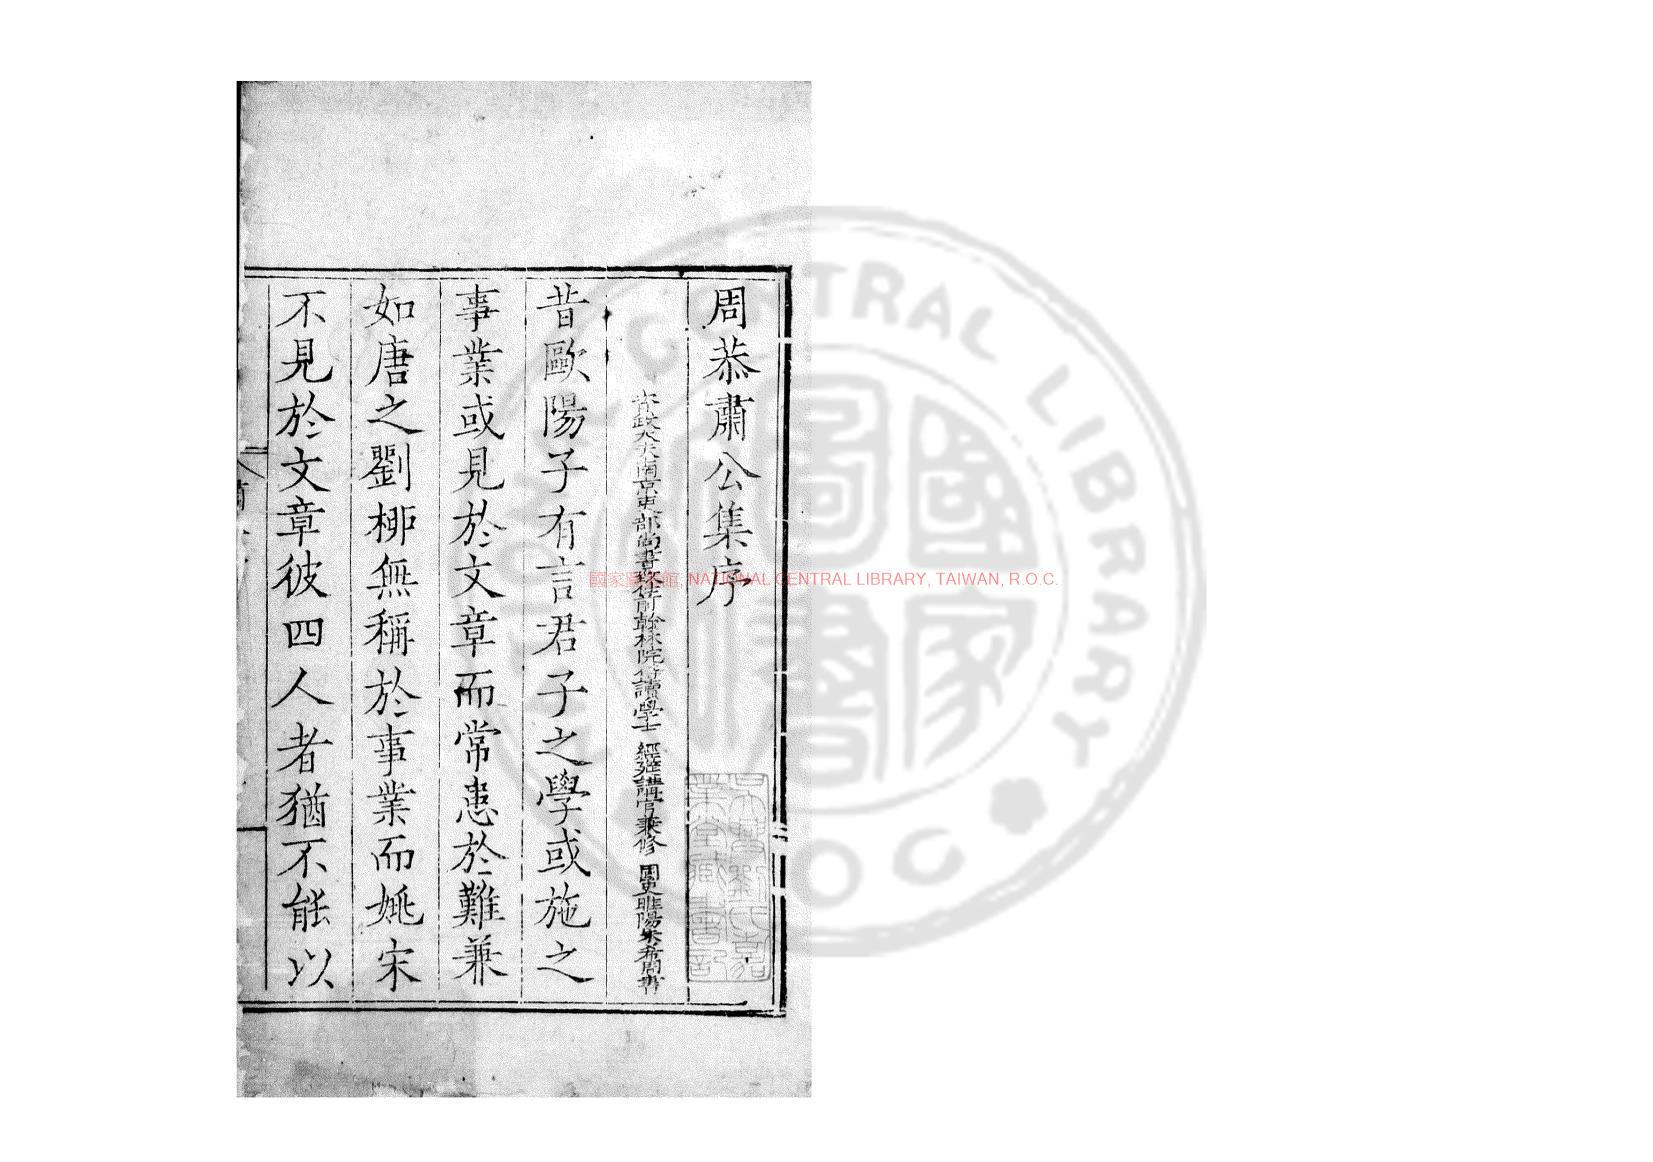 周恭肅公集序
資政大夫南京吏部尚書
前翰林院侍讀學士 經筵講官兼修 國史睢陽朱希周書
昔歐陽子有言君子之學或施之
事業或見於文章而常患於難兼
如唐之劉柳無稱於事業而姚宋
不見於文章彼四人者猶不能以
吳興劉氏嘉
業堂藏書記
國家圖書館, NATIONAL CENTRAL LIBRARY, TAIWAN, R.O.C.
NATIONAL CENTRAL LIBRARY R.O.C.
國家圖書